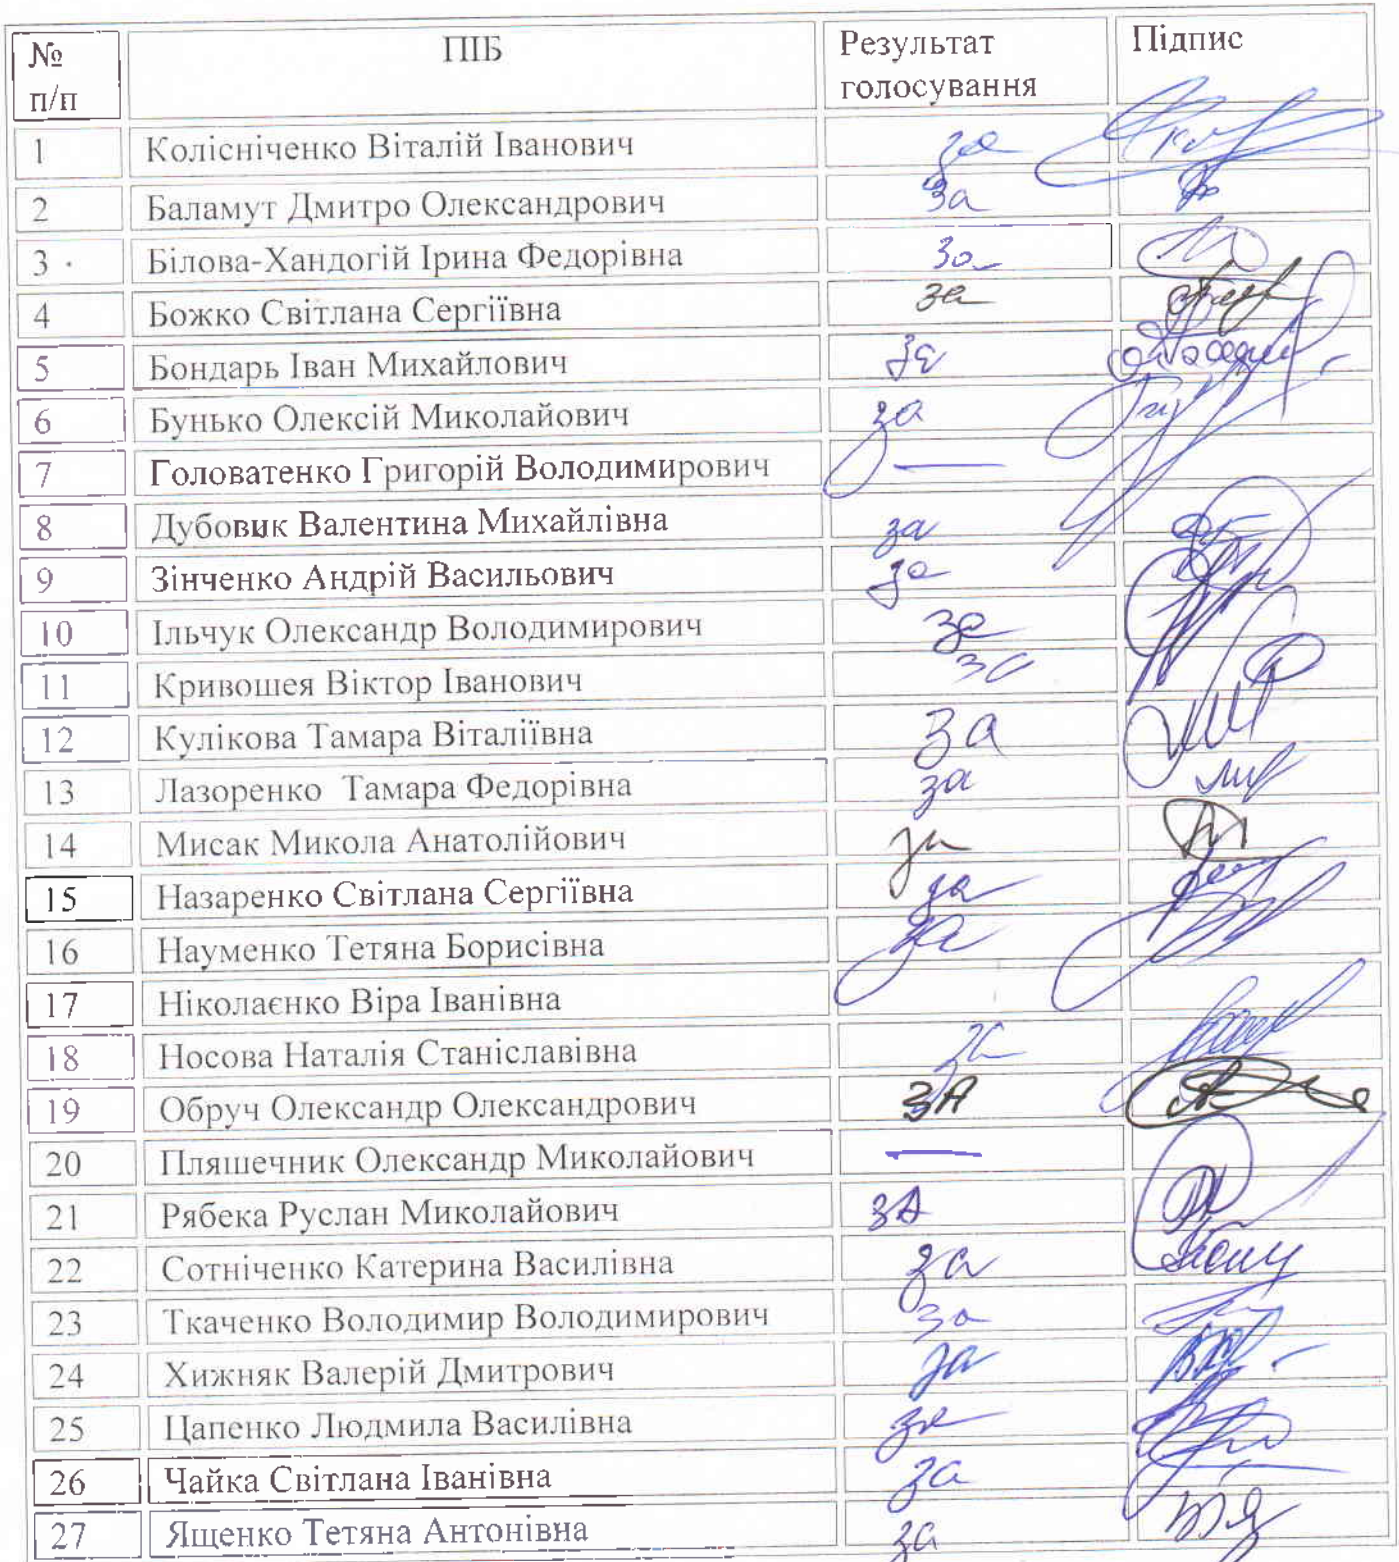 № п/п ПІБ Результат голосування Підпис
1 Колісніченко Віталій Іванович за
2 Баламут Дмитро Олександрович за
3 Білова-Хандогій Ірина Федорівна за
4 Божко Світлана Сергіївна за
5 Бондарь Іван Михайлович за
6 Бунько Олексій Миколайович за
7 Головатенко Григорій Володимирович —
8 Дубовик Валентина Михайлівна за
9 Зінченко Андрій Васильович за
10 Ільчук Олександр Володимирович за
11 Кривошея Віктор Іванович за
12 Кулікова Тамара Віталіївна за
13 Лазоренко Тамара Федорівна за
14 Мисак Микола Анатолійович за
15 Назаренко Світлана Сергіївна за
16 Науменко Тетяна Борисівна за
17 Ніколаєнко Віра Іванівна
18 Носова Наталія Станіславівна за
19 Обруч Олександр Олександрович ЗА
20 Пляшечник Олександр Миколайович —
21 Рябека Руслан Миколайович зА
22 Сотніченко Катерина Василівна за
23 Ткаченко Володимир Володимирович за
24 Хижняк Валерій Дмитрович за
25 Цапенко Людмила Василівна за
26 Чайка Світлана Іванівна за
27 Ященко Тетяна Антонівна за